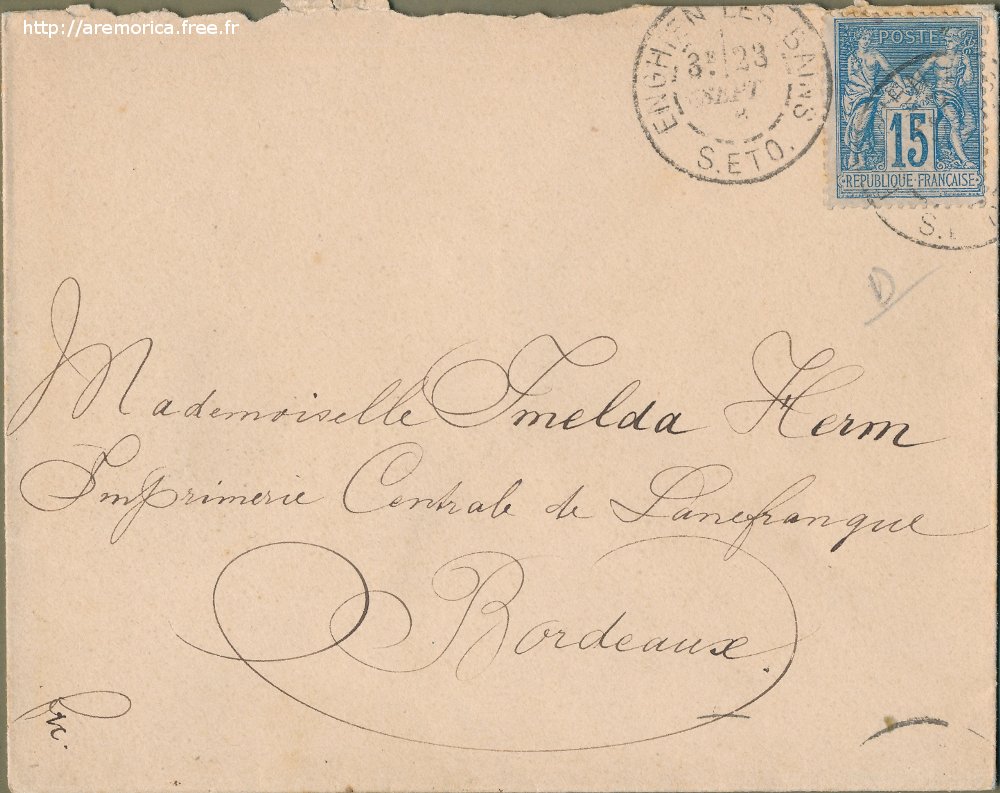 http://aremorica.free.fr
ENGHIEN LES BAINS
3E 23
SEPT
S. ET O.
POSTES
15
RÉPUBLIQUE FRANÇAISE
D
Mademoiselle Imelda Herm
Imprimerie Centrale de Lanefranque
Bordeaux.